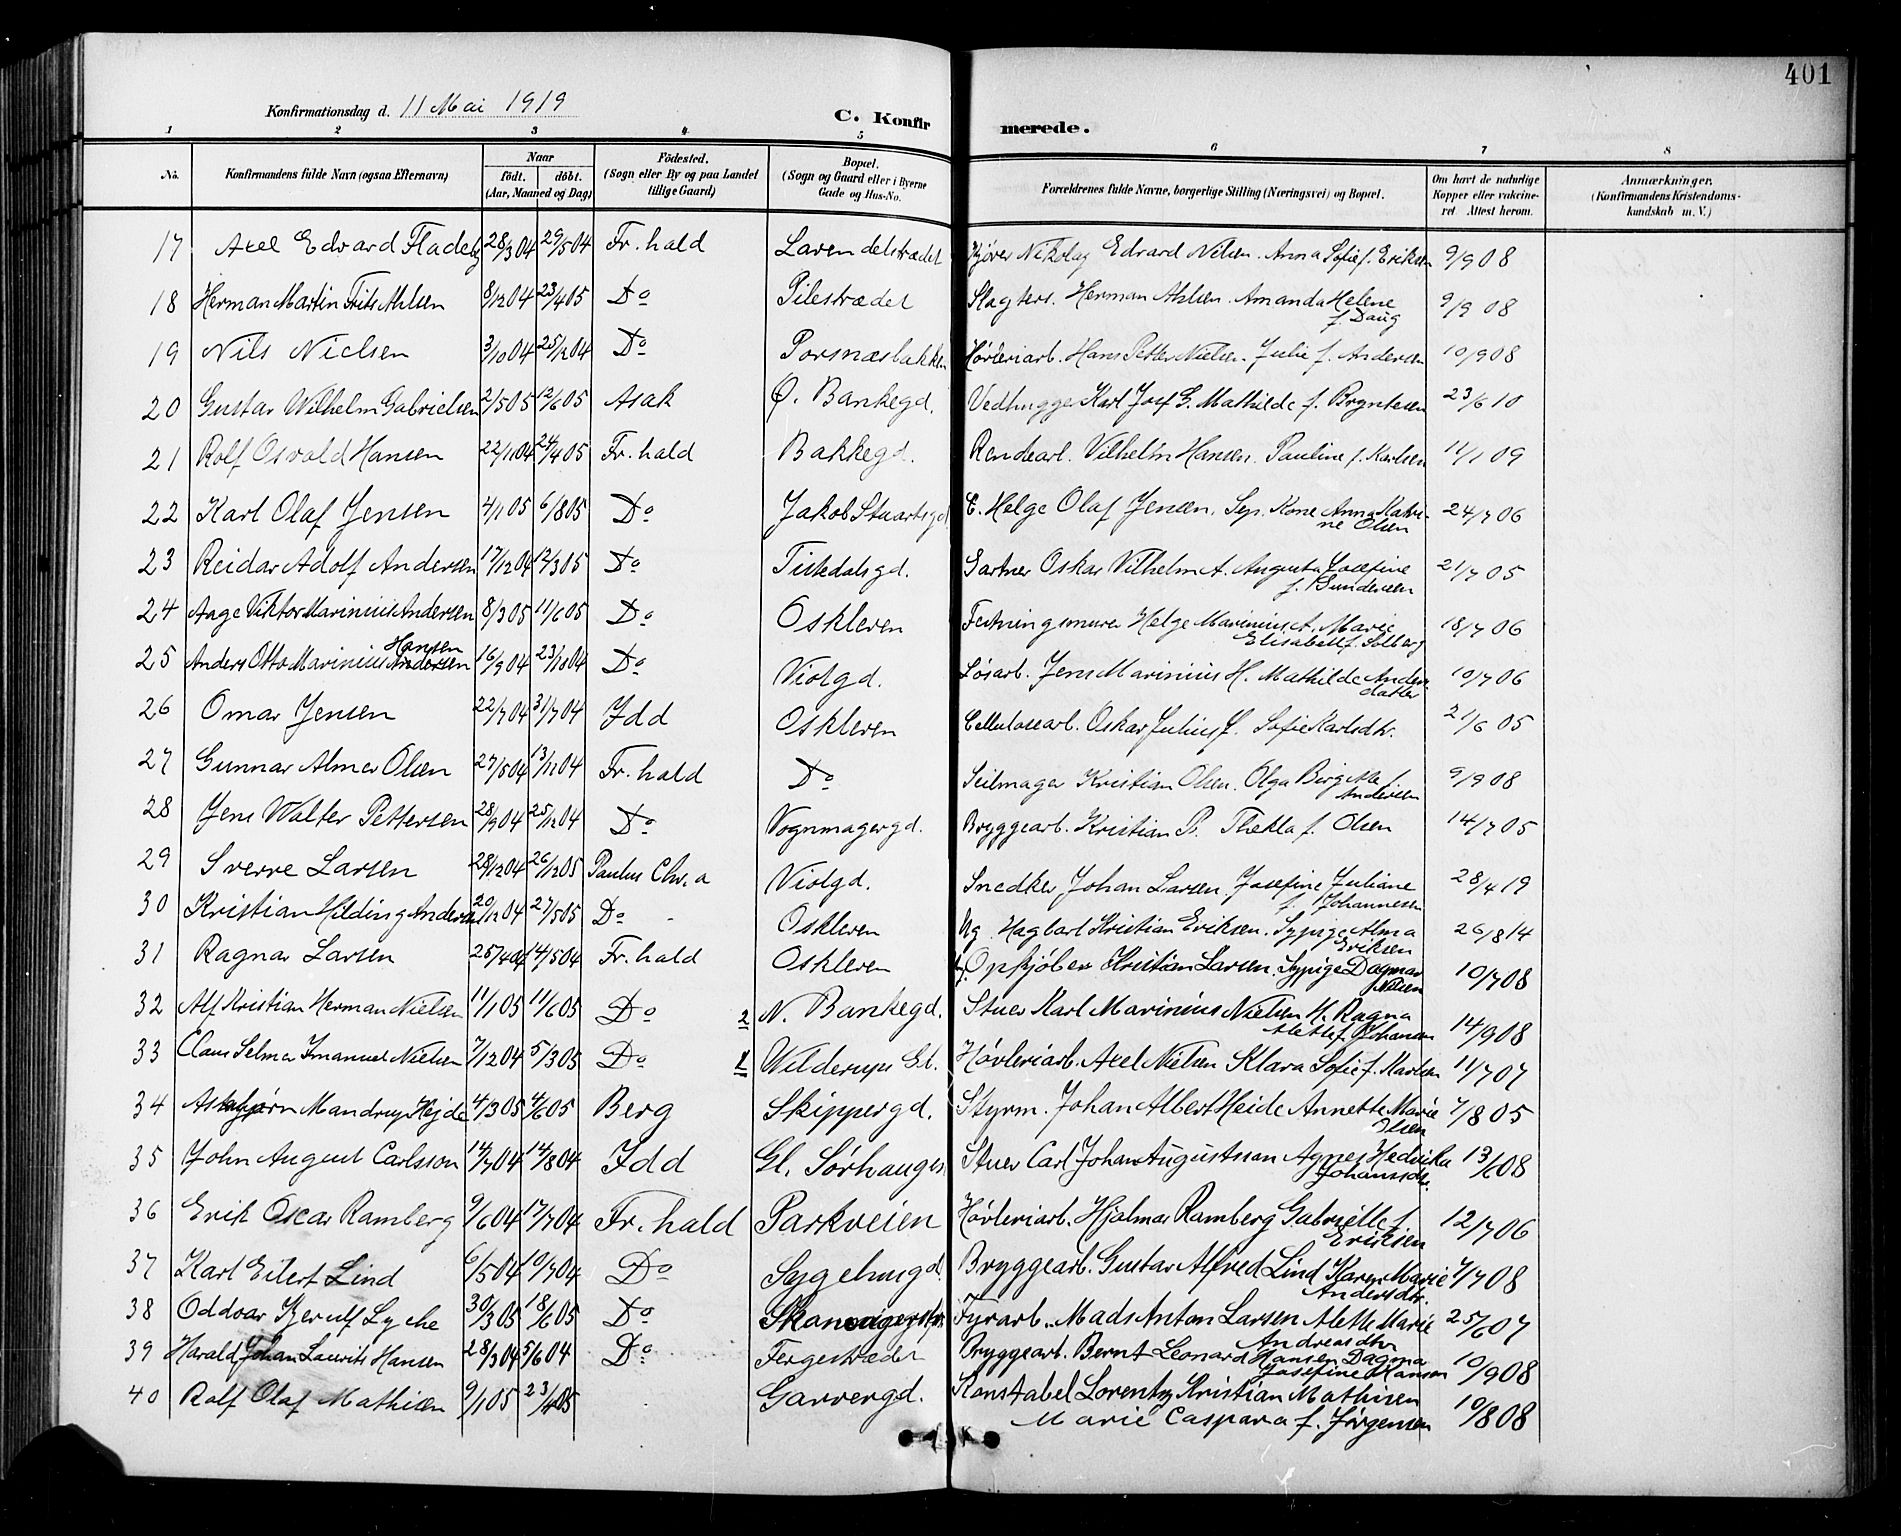 401
Konfirmationsdag d. 11 Mai 1919
C. Konfirmerede.
1 2 3 4 5 6 7 8
No.
Konfirmandens fulde Navn (ogsaa Efternavn)
Naar
födt. döbt.
(Aar, Maaned og Dag)
Födested.
(Sogn eller By og paa Landet tillige Gaard)
Bopæl.
(Sogn og Gaard eller i Byerne Gade og Hus-No.
Forældrenes fulde Navne, borgerlige Stilling (Næringsvei) og Bopæl.
Om havt de naturlige Kopper eller vakcineret. Attest herom.
Anmærkninger.
(Konfirmandens Kristendomskundskab m. V.)
17 Axel Edvard Fladeby 28/3 04 29/5 04 Fr.hald Lavendelstrædet Kjører Nikolay Edvard Nilsen. Anna Sofie f. Eriksen 9/9 08
18 Herman Martin Frits Ahlsen 8/12 04 23/4 05 Do Pilestrædet Slagters. Herman Ahlsen. Amanda Helene f. Daug 9/9 08
19 Nils Nielsen 3/10 04 25/12 04 Do Porsnæsbakken Høvleriarb. Hans Petter Nielsen. Julie f. Andersen 10/9 08
20 Gustav Wilhelm Gabrielsen 2/5 05 12/6 05 Asak Ø. Bankegd. Vedhugger Karl Josf G. Mathilde f. Bryntesen 23/6 10
21 Rolf Osvald Hansen 22/11 04 24/4 05 Fr.hald Bakkegd. Rendearb. Vilhelm Hansen. Pauline f. Karlsen 11/1 09
22 Karl Olaf Jensen 4/1 05 6/8 05 Do Jakob Stuartsgd E. Helge Olaf Jensen. Sep. Kone Anna Katrine Olsen 24/7 06
23 Reidar Adolf Andersen 17/12 04 12/3 05 Do Tistedalsgd. Gartner Oskar Vilhelm A. Augusta Josefine f. Gundersen 21/7 05
24 Aage Viktor Marinius Andersen 8/3 05 11/6 05 Do Oskleven Festningsmurer Helge Marinius A. Marie Elisabeth f. Solberg 18/7 06
25 Anders Otto Marinius Andersen Hansen 16/9 04 23/10 04 Do Violgd. Løsarb. Jens Marinius H. Mathilde Andersdatter 10/7 06
26 Omar Jensen 22/7 04 31/7 04 Idd Oskleven Cellulosearb. Oskar Julius J. Sofie Karlsdtr. 21/6 05
27 Gunnar Almer Olsen 27/5 04 13/11 04 Fr.hald Do Seilmager Kristian Olsen. Olga Birgitte f. Andersen 9/9 08
28 Jens Walter Pettersen 28/9 04 25/12 04 Do Vognmagergd. Bryggearb. Kristian P. Thekla f. Olsen 14/7 05
29 Sverre Larsen 28/12 04 26/12 05 Paulus Chr.a Violgd. Snedker Johan Larsen Josefine Juliane f. Johannesen 28/4 19
30 Kristian Hilding Andersen 20/12 04 27/5 05 Do - Oskleven Ug. Hagbart Kristian Eriksen. Sypige Alma Eriksen 26/8 14
31 Ragnar Larsen 25/4 04 14/5 04 Fr.hald Oskleven Opkjøber Kristian Larsen. Sypige Dagmar Nilsen 10/7 08
32 Alf Kristian Herman Nielsen 11/1 05 11/6 05 Do 2 N. Bankegd. Stuer Karl Marinius Nielsen H. Ragna Mette f. Johansen 14/9 08
33 Claus Selmar Imanuel Nielsen 7/12 04 5/3 05 Do 1 Wilderups Gt. Høvleriarb. Axel Nielsen Klara Sofie f. Karlsen 11/7 07
34 Asbjørn Mandrup Hejde 4/3 05 4/6 05 Berg Skippergd. Styrm. Johan Albert Heide Annette Marie Olsen 7/8 05
35 John August Carlsson 14/7 04 14/8 04 Idd Gl. Sørhaugen Stuer Carl Johan Augustsson Agnes Hedvika Johansdtr. 13/6 08
36 Erik Oscar Ramberg 9/6 04 17/7 04 Fr.hald Parkveien Høvleriarb. Hjalmar Ramberg Gabrielle f. Eriksen 12/7 06
37 Karl Eilert Lind 6/5 04 10/7 04 Do Sagehugd. Bryggearb. Gustav Alfred Lind Karen Marie Andersdtr. 7/7 08
38 Oddvar Kjerulf Lyche 30/3 05 18/6 05 Do Fyrarb. Mads Anton Larsen Alette Marie Andreasdtr 25/6 07
39 Harald Johan Laurits Hansen 28/3 04 5/6 04 Do Fergestrædet Bryggearb. Bernt Leonard Hansen Dagma Josefine Hansen 10/9 08
40 Rolf Olaf Mathisen 9/1 05 23/4 05 Garvergd. Konstabel Lorentz Kristian Mathisen Marie Caspara f. Jørgensen 10/8 08